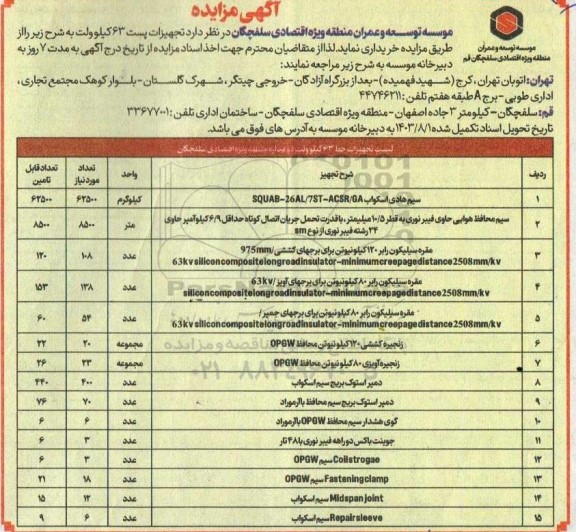 آگهی مزایده
موسسه توسعه و عمران
منطقه ویژه اقتصادی سلفچگان قم
موسسه توسعه و عمران منطقه ویژه اقتصادی سلفچگان در نظر دارد تجهیزات پست ۶۳ کیلوولت به شرح زیر را از
طریق مزایده خریداری نماید. لذا از متقاضیان محترم جهت اخذ اسناد مزایده از تاریخ درج آگهی به مدت ۷ روز به
دبیرخانه موسسه به شرح زیر مراجعه نمایند:
تهران: اتوبان تهران، کرج (شهید فهمیده) - بعد از بزرگراه آزادگان - خروجی چیتگر، شهرک گلستان - بلوار کوهک مجتمع تجاری،
اداری طوبی - برج A طبقه هفتم تلفن: ۴۴۷۴۶۲۱۱
قم: سلفچگان - کیلومتر ۳ جاده اصفهان - منطقه ویژه اقتصادی سلفچگان - ساختمان اداری تلفن: ۳۳۶۷۷۰۰۱
تاریخ تحویل اسناد تکمیل شده ۱۴۰۳/۸/۱ به دبیرخانه موسسه به آدرس های فوق می باشد.
لیست تجهیزات خط ۶۳ کیلوولت دو مداره منطقه ویژه اقتصادی سلفچگان
ردیف شرح تجهیز واحد تعداد مورد نیاز تعداد قابل تامین
۱ سیم هادی اسکواب SQUAB-26AL/7ST-ACSR/GA کیلوگرم ۶۲۵۰۰ ۶۲۵۰۰
۲ سیم محافظ هوایی حاوی فیبر نوری به قطر ۱۰/۵ میلیمتر، با قدرت تحمل جریان اتصال کوتاه حداقل ۶/۹ کیلوآمپر حاوی
۲۴ رشته فیبر نوری از نوع sm متر ۸۵۰۰ ۸۵۰۰
۳ مقره سیلیکون رابر ۱۲۰ کیلونیوتن برای برجهای کششی/975mm
63kv siliconcompositelongroadinsulator-minimumcreepagedistance2508mm/kv عدد ۱۰۸ ۱۲۰
۴ مقره سیلیکون رابر ۸۰ کیلونیوتن برای برجهای آویز/63kv
siliconcompositelongroadinsulator-minimumcreepagedistance2508mm/kv عدد ۱۳۸ ۱۵۳
۵ مقره سیلیکون رابر ۸۰ کیلونیوتن برای برجهای جمپر/
63kv siliconcompositelongroadinsulator-minimumcreepagedistance2508mm/kv عدد ۵۴ ۶۰
۶ زنجیره کششی ۱۲۰ کیلونیوتن محافظ OPGW مجموعه ۲۰ ۲۲
۷ زنجیره آویزی ۸۰ کیلونیوتن محافظ OPGW مجموعه ۲۳ ۲۶
۸ دمپر استوک بریج سیم اسکواب عدد ۴۰۰ ۴۴۰
۹ دمپر استوک بریج سیم محافظ با آرموراد عدد ۷۰ ۷۶
۱۰ گوی هشدار سیم محافظ OPGW با آرموراد عدد ۶ ۶
۱۱ جوینت باکس دوراهه فیبر نوری با ۴۸ تار عدد ۳ ۶
۱۲ Coilstrogae سیم OPGW عدد ۳ ۶
۱۳ Fasteningclamp سیم OPGW عدد ۱۸ ۲۱
۱۴ Midspanjoint سیم اسکواب عدد ۱۲ ۱۵
۱۵ Repairsleeve سیم اسکواب عدد ۶ ۹